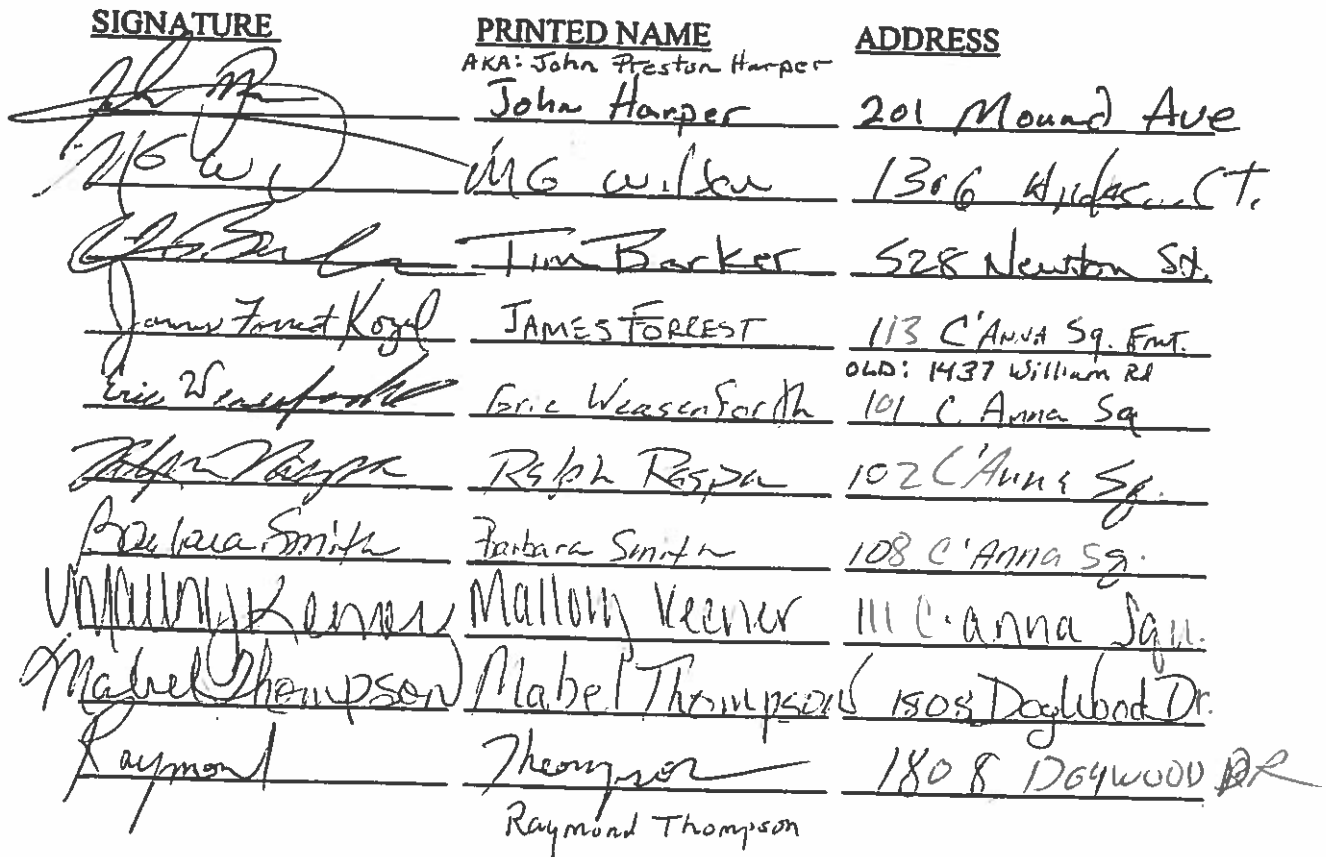 SIGNATURE PRINTED NAME ADDRESS
AKA: John Preston Harper
John Harper 201 Mound Ave
MG W MG Wilson 1306 CT.
Tim Barker 528 Newton St.
James Forrest Kozel JAMES FORREST 113 C'ANNA Sq. Fmt.
OLD: 1437 William Rd
Eric Weasenforth Eric Weasenforth 101 C. Anna Sq
Ralph Raspa Ralph Raspa 102 C'Anna Sq.
Barbara Smith Barbara Smith 108 C'Anna Sq.
Mallory Keener Mallory Keener 111 C. anna Squ.
Mabel Thompson Mabel Thompson 1808 DogWood Dr.
Raymond Thompson 1808 DOGWOOD DR
Raymond Thompson